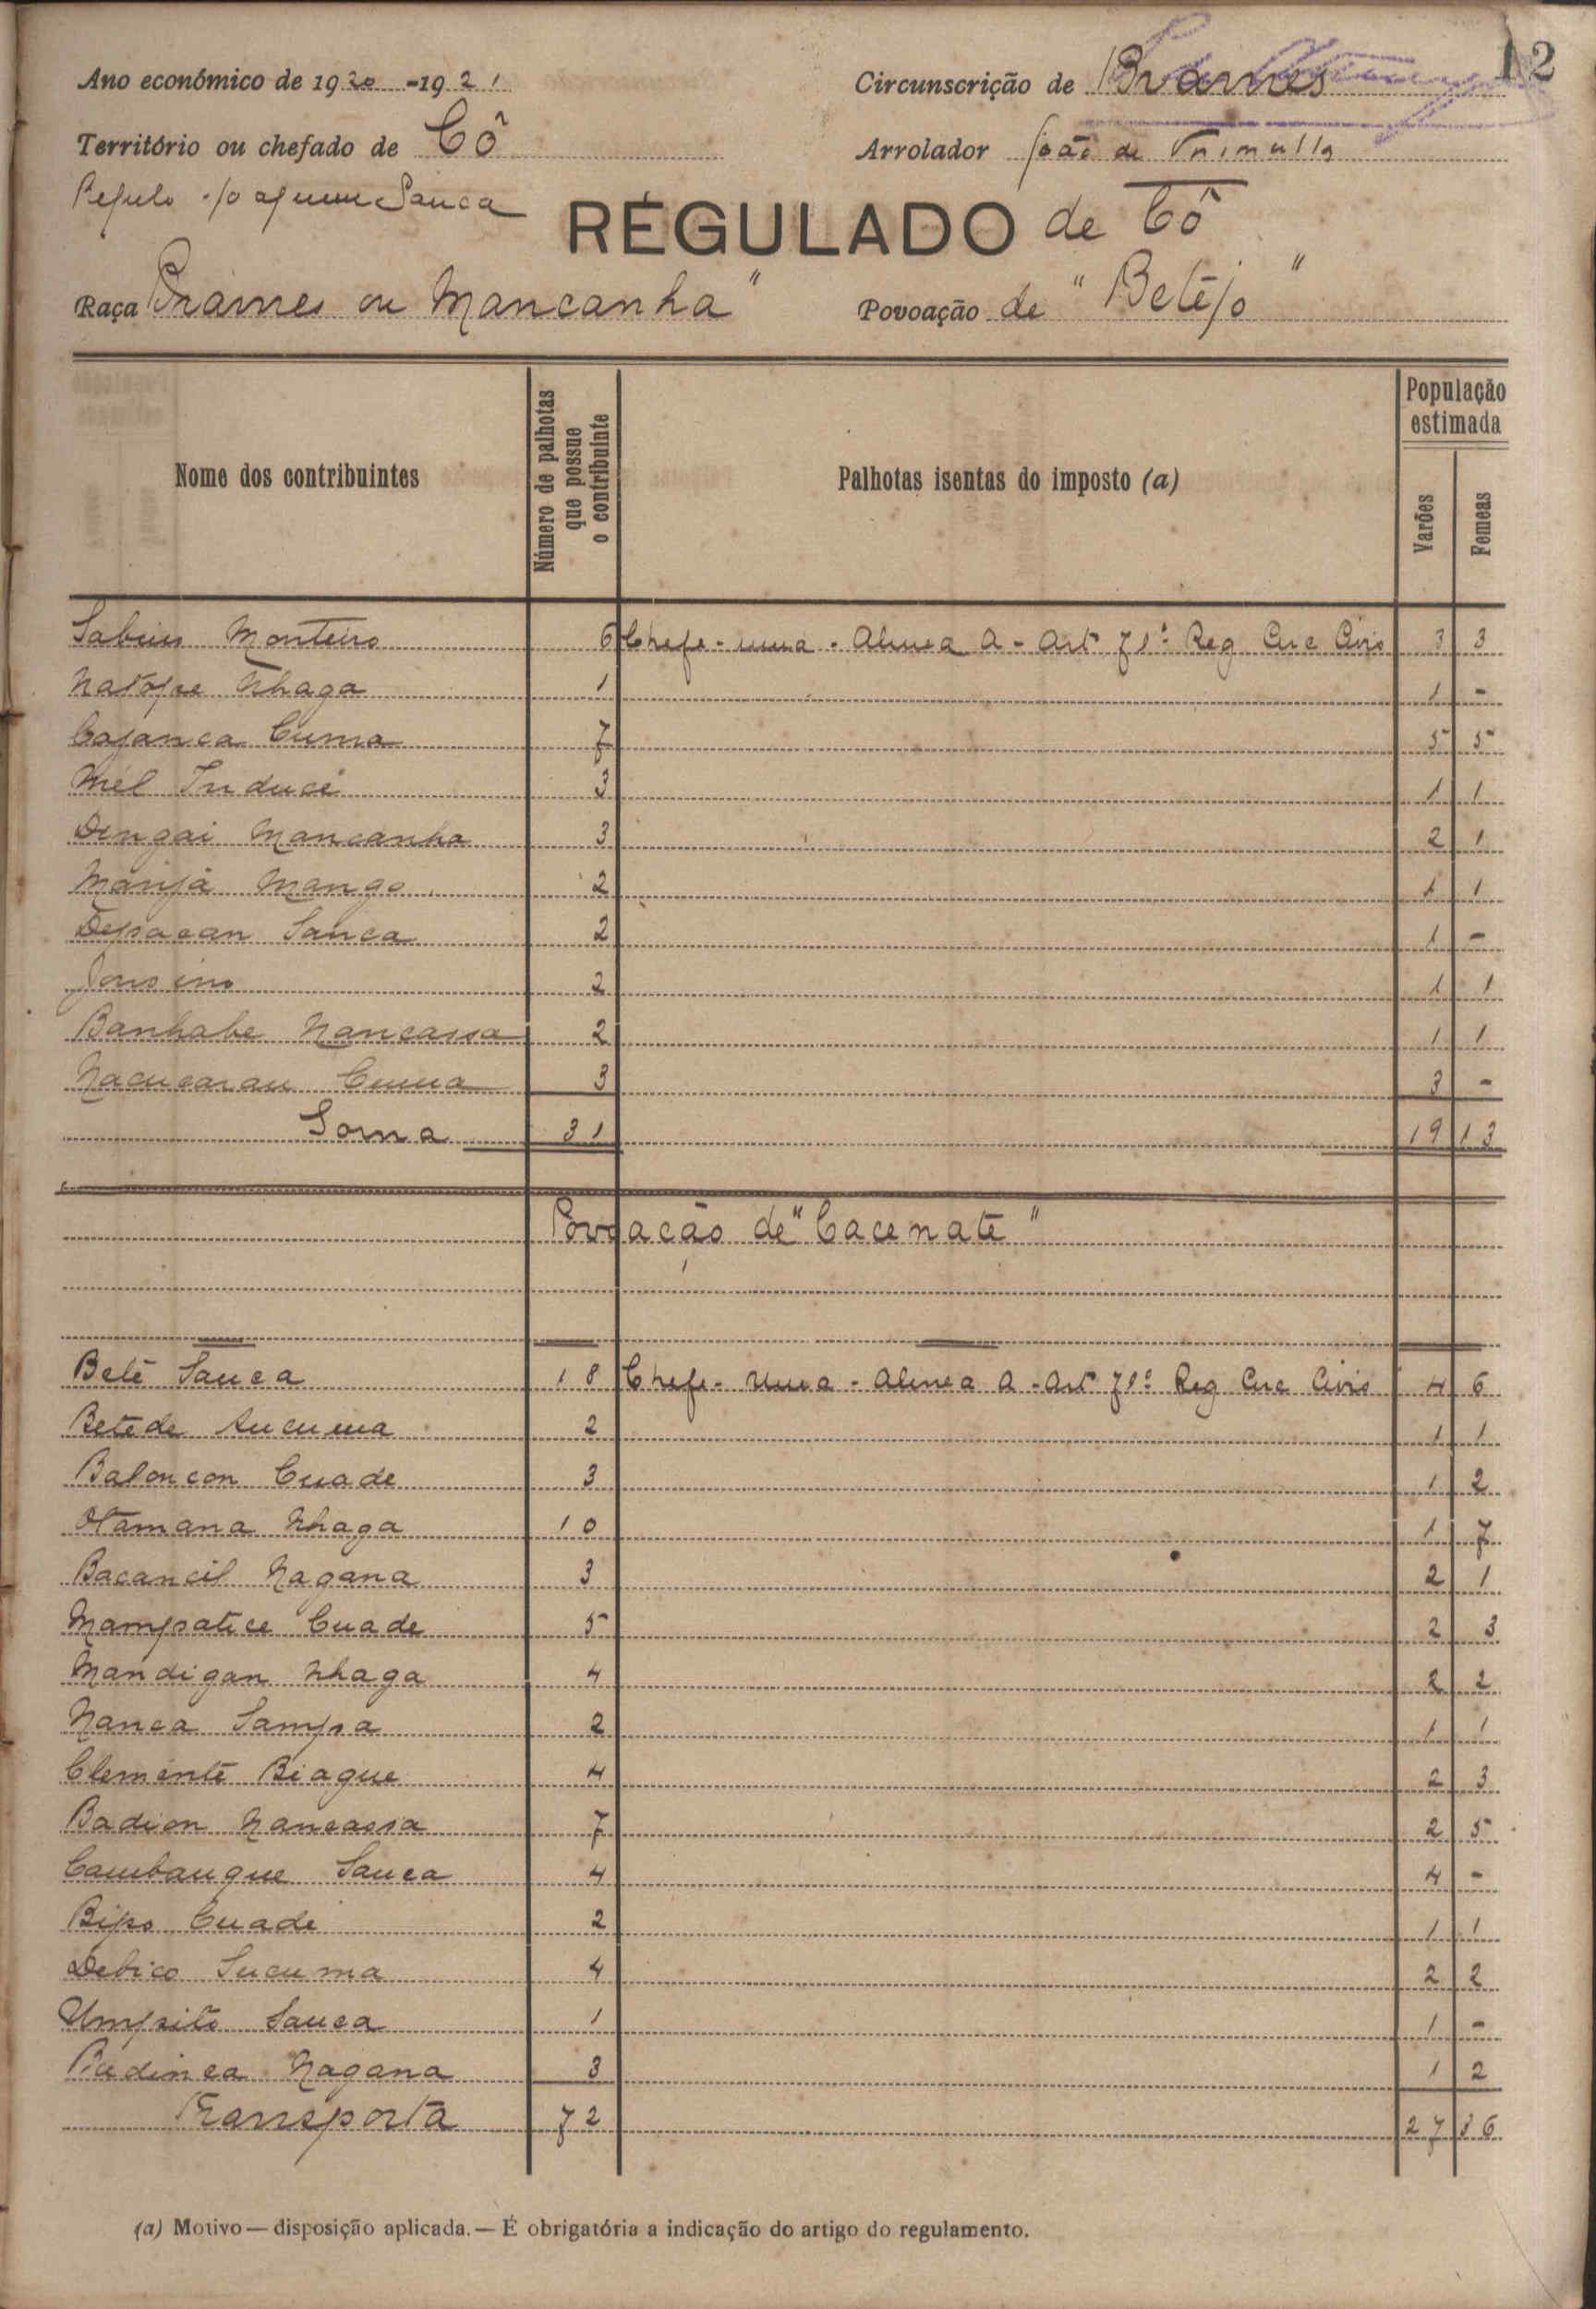 12
Ano económico de 1920-1921 Circunscrição de Brames
Território ou chefado de Cô Arrolador João de
Regulo Joaquim Sanca
REGULADO de Cô
Raça Brames ou Mancanha" Povoação de "Betêjo"
Nome dos contribuintes Número de palhotas que possue o contribuinte Palhotas isentas do imposto (a) População estimada Varões Femeas
Sabino Monteiro 6 Chefe - uma - Alinea A - Art 71º Reg Circ Civis 3 3
Natope Nhaga 1 1 -
Cajanca Cuma 7 5 5
Mel Induce 3 1 1
Dingai Mancanha 3 2 1
Manjá Mango 2 1 1
Depacan Sanca 2 1 -
2 1 1
Banhabe Nancassa 2 1 1
Nacucarau Cuma 3 3 -
Soma 31 19 13
Povoação de "Cacenate"
Belé Sanca 18 Chefe - Uma - Alinea A - Art 71º Reg Circ Civis 4 6
Betede Sucuma 2 1 1
Baloncon Cuade 3 1 2
Otamana Nhaga 10 1 7
Bacancil Nagana 3 2 1
Mampatice Cuade 5 2 3
Mandigan Nhaga 4 2 2
Nanca Sampa 2 1 1
Clemente Biague 4 2 3
Badion Nancassa 7 2 5
Cambangue Sanca 4 4 -
Bipo Cuade 2 1 1
Debico Sucuma 4 2 2
Umpsito Sanca 1 1 -
Badinca Nagana 3 1 2
Transporta 72 27 36
(a) Motivo — disposição aplicada. — É obrigatória a indicação do artigo do regulamento.